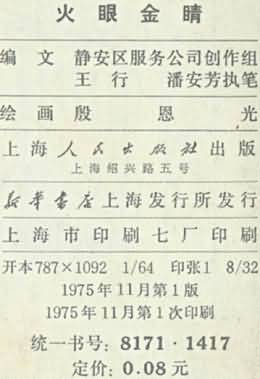 火眼金睛
编文 静安区服务公司创作组
王行 潘安芳执笔
绘画 殷恩光
上海人民出版社出版
上海绍兴路五号
新华书店上海发行所发行
上海市印刷七厂印刷
开本787×1092 1/64 印张1 8/32
1975年11月第1版
1975年11月第1次印刷
统一书号：8171·1417
定价：0.08元